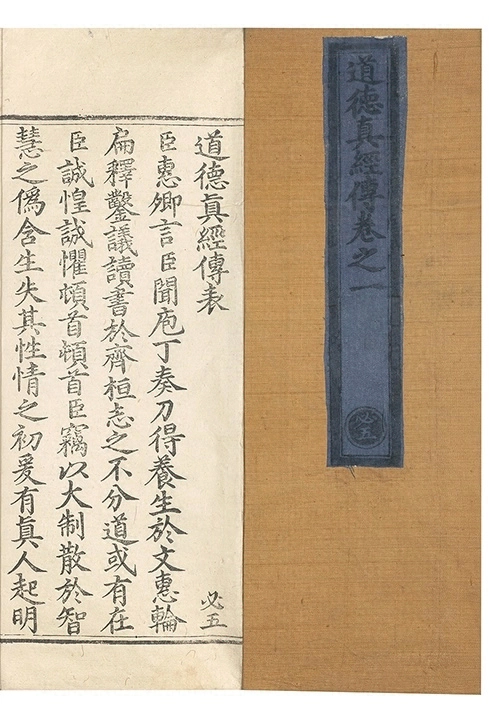 道德真經傳卷之一
必五
道德真經傳表
必五
臣惠卿言臣聞庖丁奏刀得養生於文惠輪
扁釋鑿議讀書於齊桓志之不分道或有在
臣誠惶誠懼頓首頓首臣竊以大制散於智
慧之僞含生失其性情之初爰有真人起明